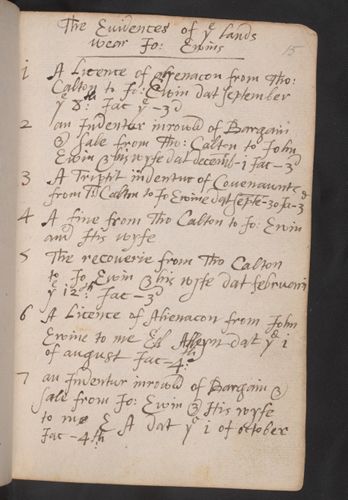 The Evidences of yᵉ lands
wear Jo: Ewins
15
1 A Licence of Alienacon from Tho:
Calton to Jo: Ewin dat September
yᵉ 8ᵗʰ: Jac yᵉ -3ᵈ
2 an Indentur inrowld of Bargain
& Sale from Tho: Calton to John
Ewin & his wyfe dat decemb-1 Jac-3ᵈ
3 A Tryptit indentur of Covenauntᵉ
from Tħ Calton to Jo Ewine dat septe-30 Ja-3ᵈ
4 A fine from Tho Calton to Jo: Ewin
and His wyfe
5 The recoverie from Tho Calton
to Jo Ewin & his wyfe dat februerii
yᵉ 12ᵗʰ Jac-3ᵈ
6 A Licence of Alienacon from John
Ewine to me Ed Alleyn dat yᵉ i
of august Jac-4ᵗʰ
7 an Indentur inrowld of Bargain &
Sale from Jo: Ewin & His wyfe
to me E A dat yᵉ i of october
Jac-4ᵗʰ